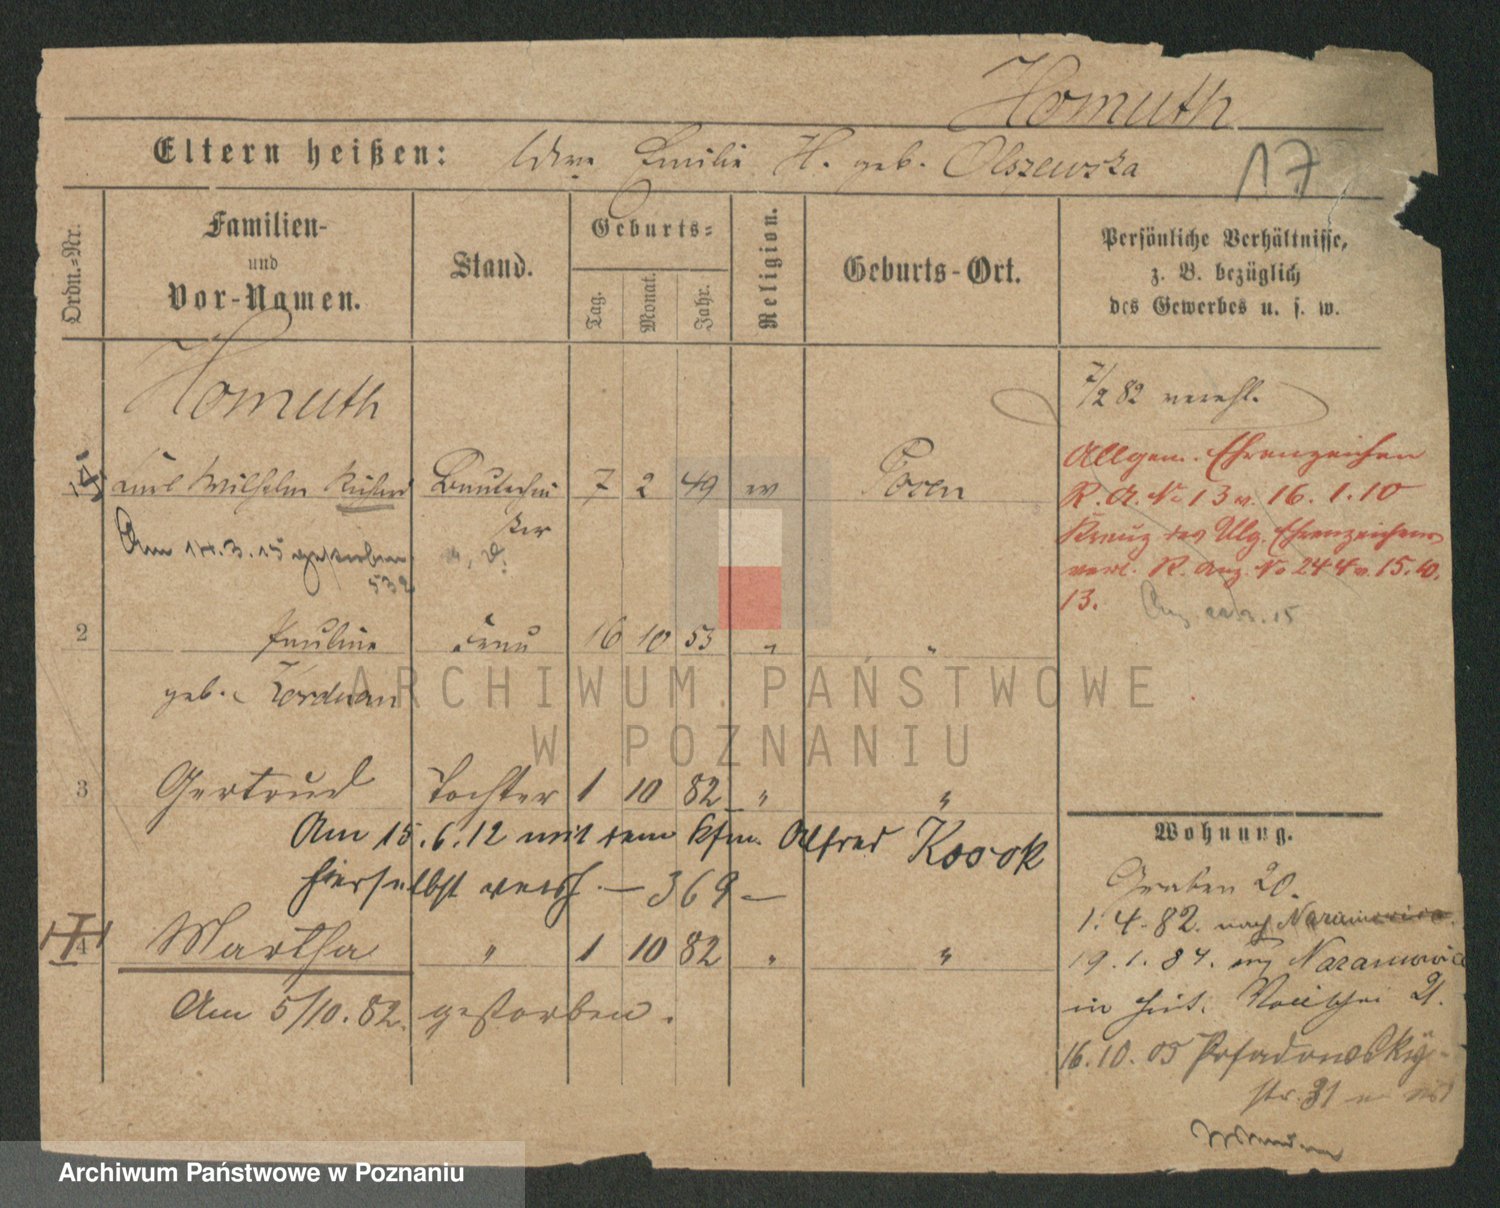 Homuth
Eltern heißen: Wwe Emilie H. geb. Olszewska
17
Ordn.-Nr.
Familien-
und
Vor-Namen.
Stand.
Geburts-
Tag.
Monat.
Jahr.
Religion.
Geburts-Ort.
Persönliche Verhältnisse,
z. B. bezüglich
des Gewerbes u. s. w.
Homuth
7/2 82 verehl.
Carl Wilhelm Richard 7 2 49 ev Posen
Am 14.3.15 gestorben
532
Allgem. Ehrenzeichen
R. A. No 13 v. 16. 1. 10
Kreuz des Allg. Ehrenzeichens
verl. R. Anz. No 244 v. 15. 10.
13.
2 Pauline Frau 16 10 53 " "
geb. Torduan
3 Gertrud Tochter 1 10 82 " "
Am 15.6.12 mit dem Kfm. Alfred
hierselbst verh. — 369 —
4 Martha " 1 10 82 " "
Am 5/10. 82. gestorben.
Wohnung.
Graben 20.
1. 4. 82. nach Naramowice.
19. 1. 84. Naramowice
in 21.
16. 10. 05 Posadowsky-
str. 31
ARCHIWUM PAŃSTWOWE
W POZNANIU
Archiwum Państwowe w Poznaniu